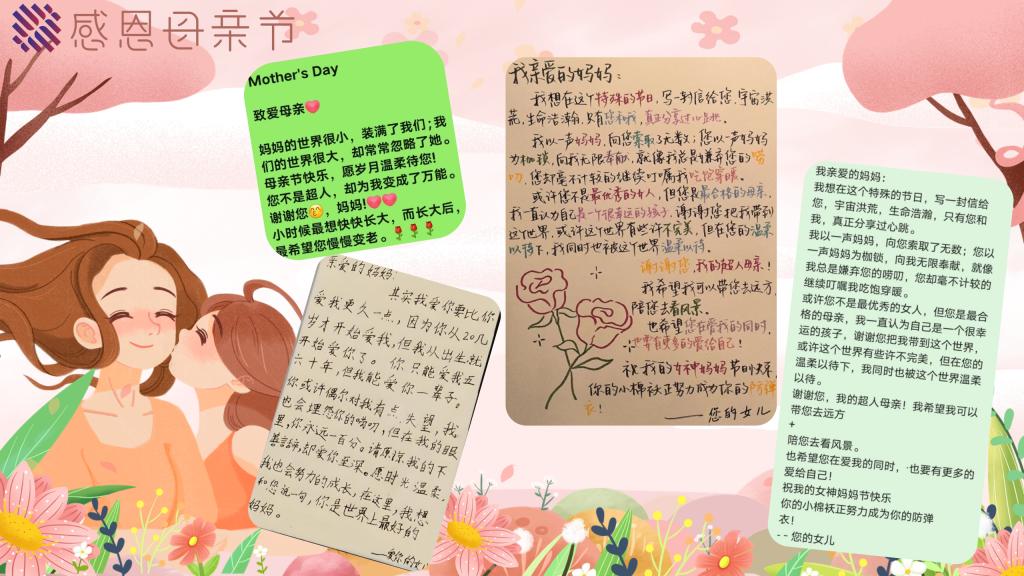 感恩母亲节
Mother's Day
致爱母亲❤️
妈妈的世界很小，装满了我们；我
们的世界很大，却常常忽略了她。
母亲节快乐，愿岁月温柔待您！
您不是超人，却为我变成了万能。
谢谢您😊，妈妈！❤️❤️
小时候最想快快长大，而长大后，
最希望您慢慢变老。🌹🌹🌹
亲爱的妈妈：
其实我爱你要比你
爱我更久一点，因为你从20几
岁才开始爱我，但我从出生就
开始爱你了。你只能爱我五
六十年，但我能爱你一辈子。
你或许偶尔对我有点失望，我
也会埋怨你的唠叨，但在我的眼
里，你永远一百分。请原谅我的不
善言辞，却爱你至深。愿时光温柔，
我也会努力的成长，在这里，我想
和您说一句，你是世界上最好的
妈妈。
——爱你的女儿
我亲爱的妈妈：
我想在这个特殊的节日，写一封信给您，宇宙洪
荒，生命浩瀚，只有您和我，真正分享过心跳。
我以一声妈妈，向您索取了无数；您以一声妈妈
为枷锁，向我无限奉献，就像我总是嫌弃您的唠
叨，您却毫不计较的继续叮嘱我吃饱穿暖。
或许您不是最优秀的女人，但您是最合格的母亲，
我一直认为自己是一个很幸运的孩子，谢谢您把我带到
这个世界，或许这个世界有些许不完美，但在您的温柔
以待下，我同时也被这个世界温柔以待。
谢谢您，我的超人母亲！
我希望我可以带您去远方，
陪您去看风景。
也希望您在爱我的同时，
也要有更多的爱给自己！
祝我的女神妈妈节日快乐，
你的小棉袄正努力成为你的防弹
衣！
——您的女儿
我亲爱的妈妈：
我想在这个特殊的节日，写一封信给
您，宇宙洪荒，生命浩瀚，只有您和
我，真正分享过心跳。
我以一声妈妈，向您索取了无数；您以
一声妈妈为枷锁，向我无限奉献，就像
我总是嫌弃您的唠叨，您却毫不计较的
继续叮嘱我吃饱穿暖。
或许您不是最优秀的女人，但您是最合
格的母亲，我一直认为自己是一个很幸
运的孩子，谢谢您把我带到这个世界，
或许这个世界有些许不完美，但在您的
温柔以待下，我同时也被这个世界温柔
以待。
谢谢您，我的超人母亲！我希望我可以
带您去远方
+
陪您去看风景。
也希望您在爱我的同时，·也要有更多的
爱给自己！
祝我的女神妈妈节快乐
你的小棉袄正努力成为你的防弹
衣！
- - 您的女儿